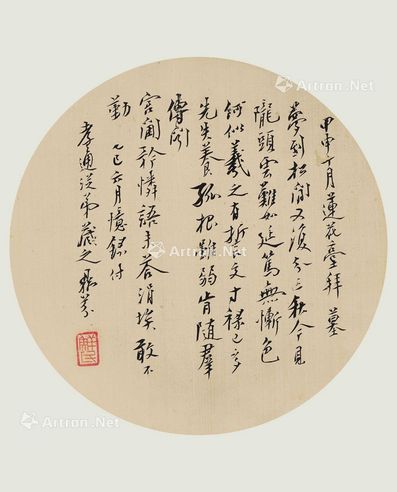 甲申十月蓮花臺拜墓
夢到松間又後
三秋今見
隴頭雲難如延篤無慚色
何似羲之有折文寸祿已
先失養孤根雖弱肯随羣
傳聞
宮閫矜憐語未答涓埃敢不
勤
乙巳六月憶錄付
孝通從弟藏之
Artron.Net
Artron.Net
Artron.Net
Artron.Net